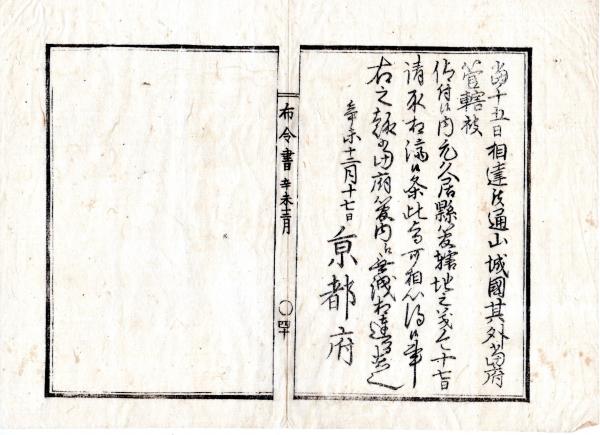 當十五日相達候通山城國其外當府
管轄被
仰付候内元久居縣管轄地之義今十七日
請取相濟候条此旨可相心得候事
右之趣山城國管内無洩相達者也
辛未十二月十七日 京都府
布令書 辛未十二月 〇四十